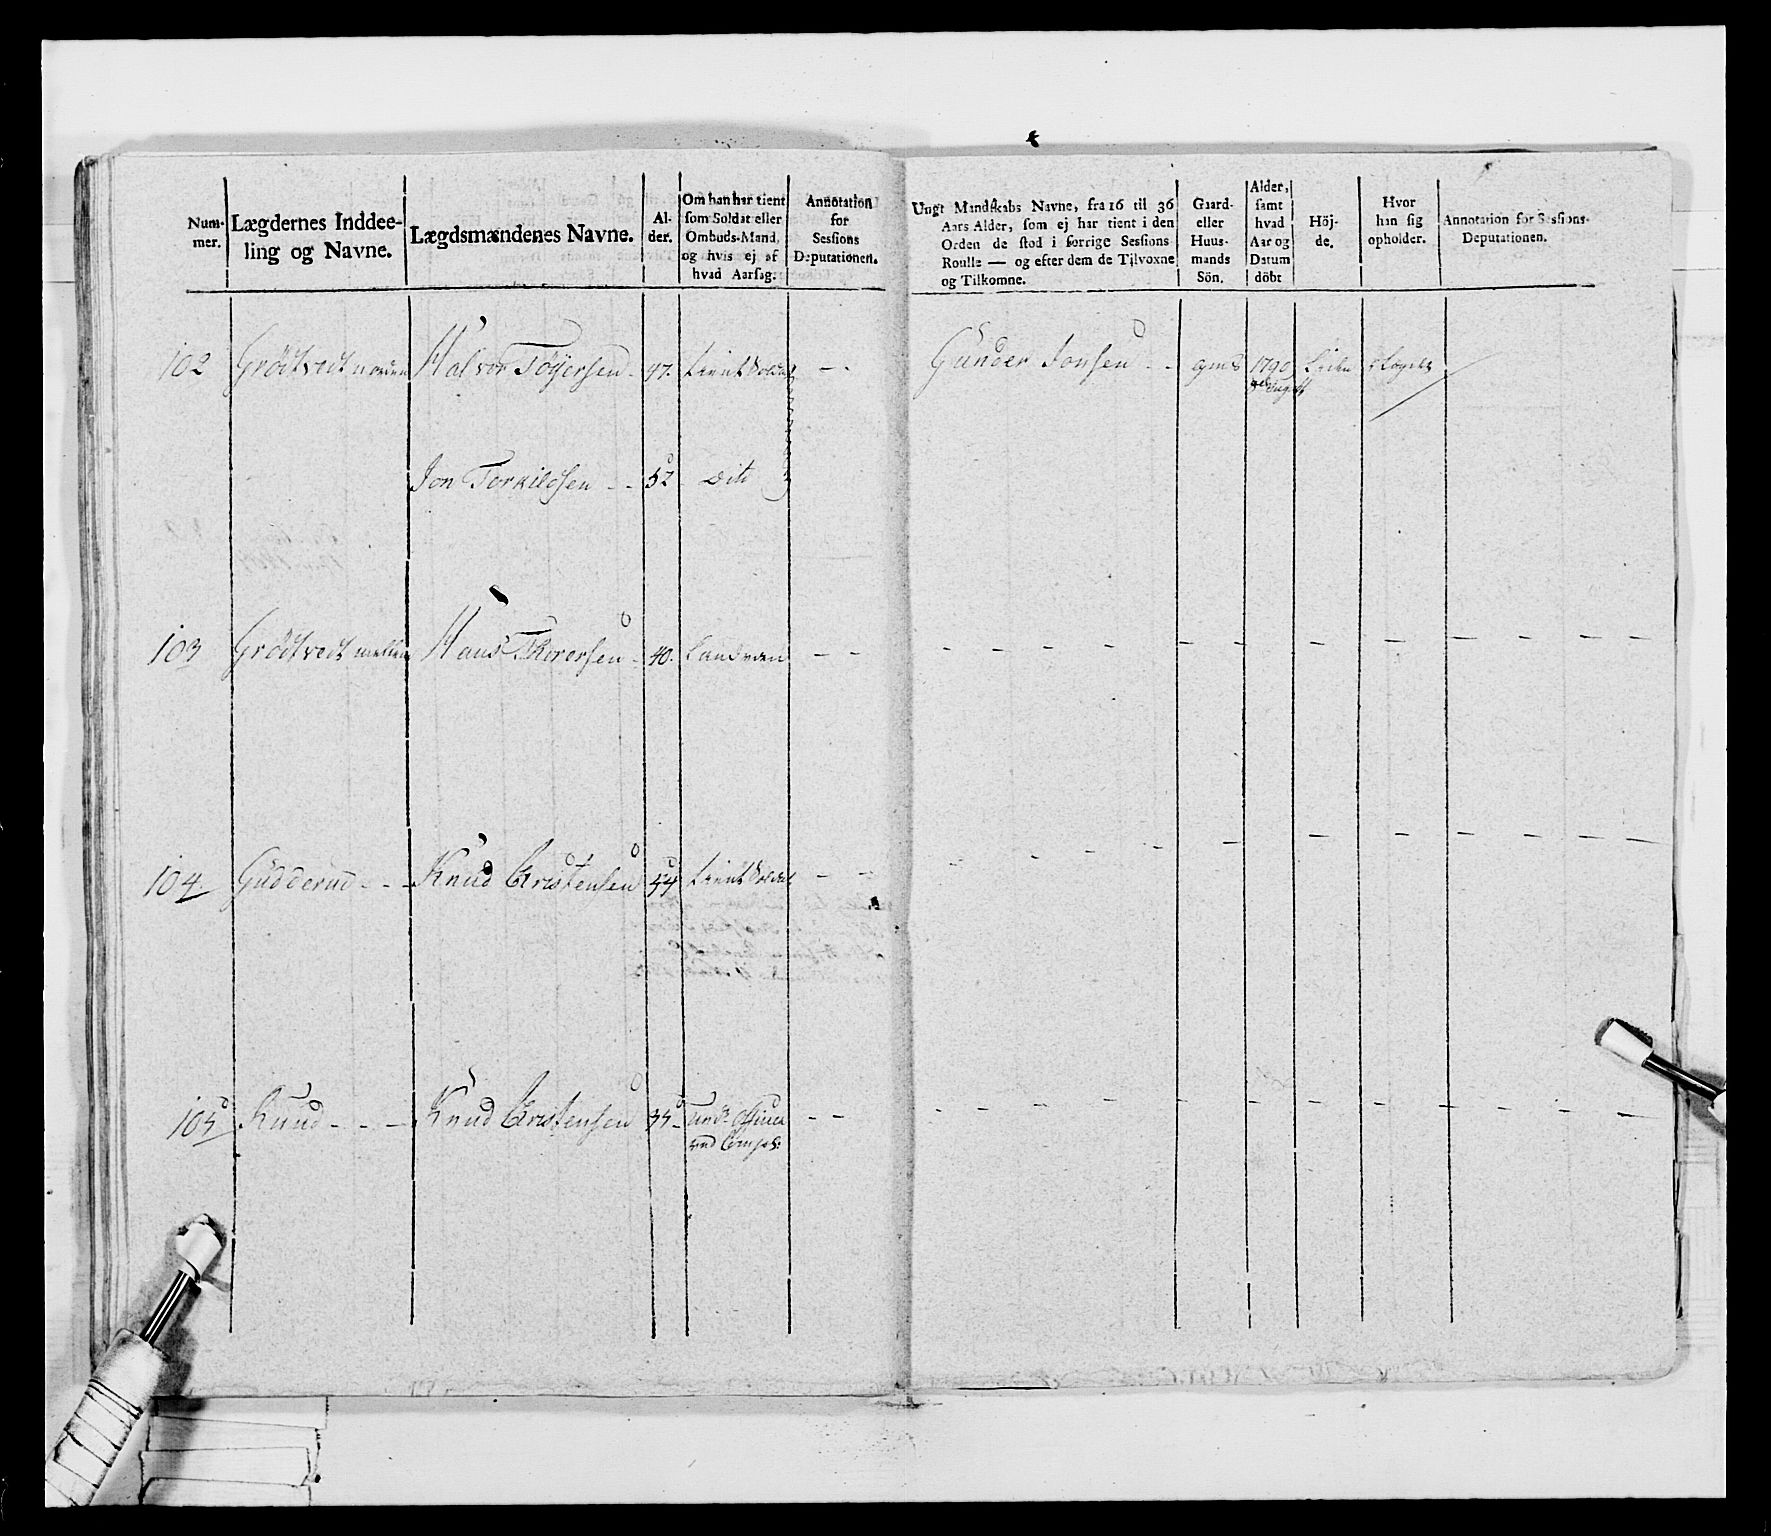 Num-
mer.
Lægdernes Inddee-
ling og Navne.
Lægdsmændenes Navne.
Al-
der.
Om han har tient
som Soldat eller
Ombuds-Mand,
og hvis ej af
hvad Aarsag.
Annotation
for
Sessions
Deputationen.
Ungt Mandskabs Navne, fra 16 til 36
Aars Alder, som ej har tient i den
Orden de stod i forrige Sessions
Roulle — og efter dem de Tilvoxne
og Tilkomne.
Gaard-
eller
Huus-
mands
Sön.
Alder,
samt
hvad
Aar og
Datum
döbt
Höj-
de.
Hvor
han sig
opholder.
Annotation for Sessions-
Deputationen.
102 Grödtvedt norden Halvor Töÿersen 47. tient Soldat Gunder Jonsen gmS 1790 Liden
Jon Torkildsen 52 Dito
103 Grödtvedt mellem Hans Thorersen 40. Landværn
104 Gudderud Knud Christensen 54 tient Soldat
105 Ruud Knud Christensen 35 Und: Officer
ved Comp: